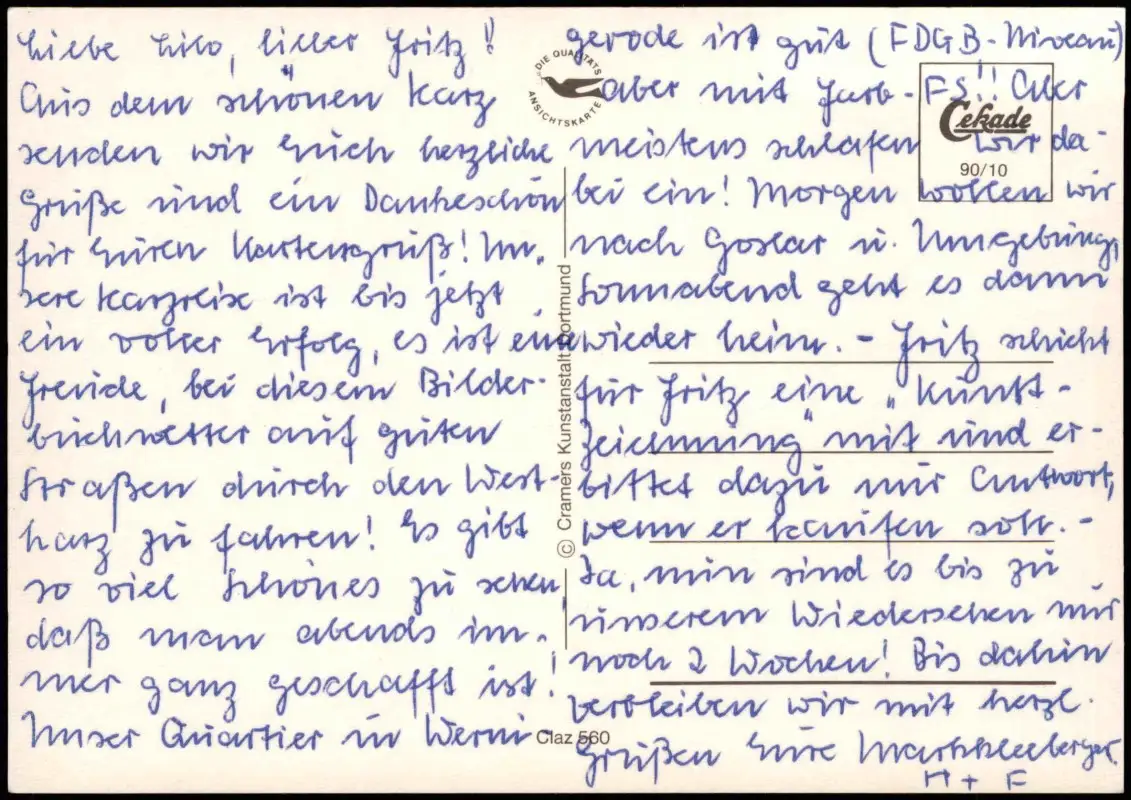 Liebe Lilo, lieber Fritz!
Aus dem schönen Harz
senden wir Euch herzliche
Grüße und ein Dankeschön
für Euren Kartengruß! Un-
sere Harzreise ist bis jetzt
ein voller Erfolg, es ist eine
Freude, bei diesem Bilder-
buchwetter auf guten
Straßen durch den West-
harz zu fahren! Es gibt
so viel Schönes zu sehen,
daß man abends im-
mer ganz geschafft ist!
Unser Quartier in Werni-
gerode ist gut (FDGB-Niveau)
aber mit Farb-FS!! Aber
meistens schlafen wir da-
bei ein! Morgen wollen wir
nach Goslar u. Umgebung,
Sonnabend geht es dann
wieder heim. – Fritz schickt
für Fritz eine „Kunst-
zeichnung" mit und er-
bittet dazu nur Antwort,
wenn er kaufen soll. –
Ja, nun sind es bis zu
unserem Wiedersehen nur
noch 2 Wochen! Bis dahin
verbleiben wir mit herzl.
Grüßen Eure Markkleeberger
H + F
DIE QUALITÄTS
ANSICHTSKARTE
Cekade
90/10
© Cramers Kunstanstalt Dortmund
Claz 560